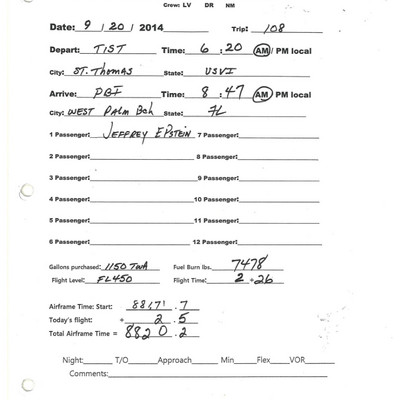 Crew: LV DR NM
Date: 9 / 20 / 2014 Trip: 108
Depart: TIST Time: 6 : 20 AM / PM local
City: ST. Thomas State: USVI
Arrive: PBI Time: 8 : 47 AM / PM local
City: WEST PALM Bch State: FL
1 Passenger: JEFFREY EPSTEIN 7 Passenger:
2 Passenger: 8 Passenger:
3 Passenger: 9 Passenger:
4 Passenger: 10 Passenger:
5 Passenger: 11 Passenger:
6 Passenger: 12 Passenger:
Gallons purchased: 1150 TWA Fuel Burn lbs. 7478
Flight Level: FL450 Flight Time: 2 : 26
Airframe Time: Start: 8817 . 7
Today's flight: + 2 . 5
Total Airframe Time = 8820 . 2
Night: T/O Approach Min Flex VOR
Comments: